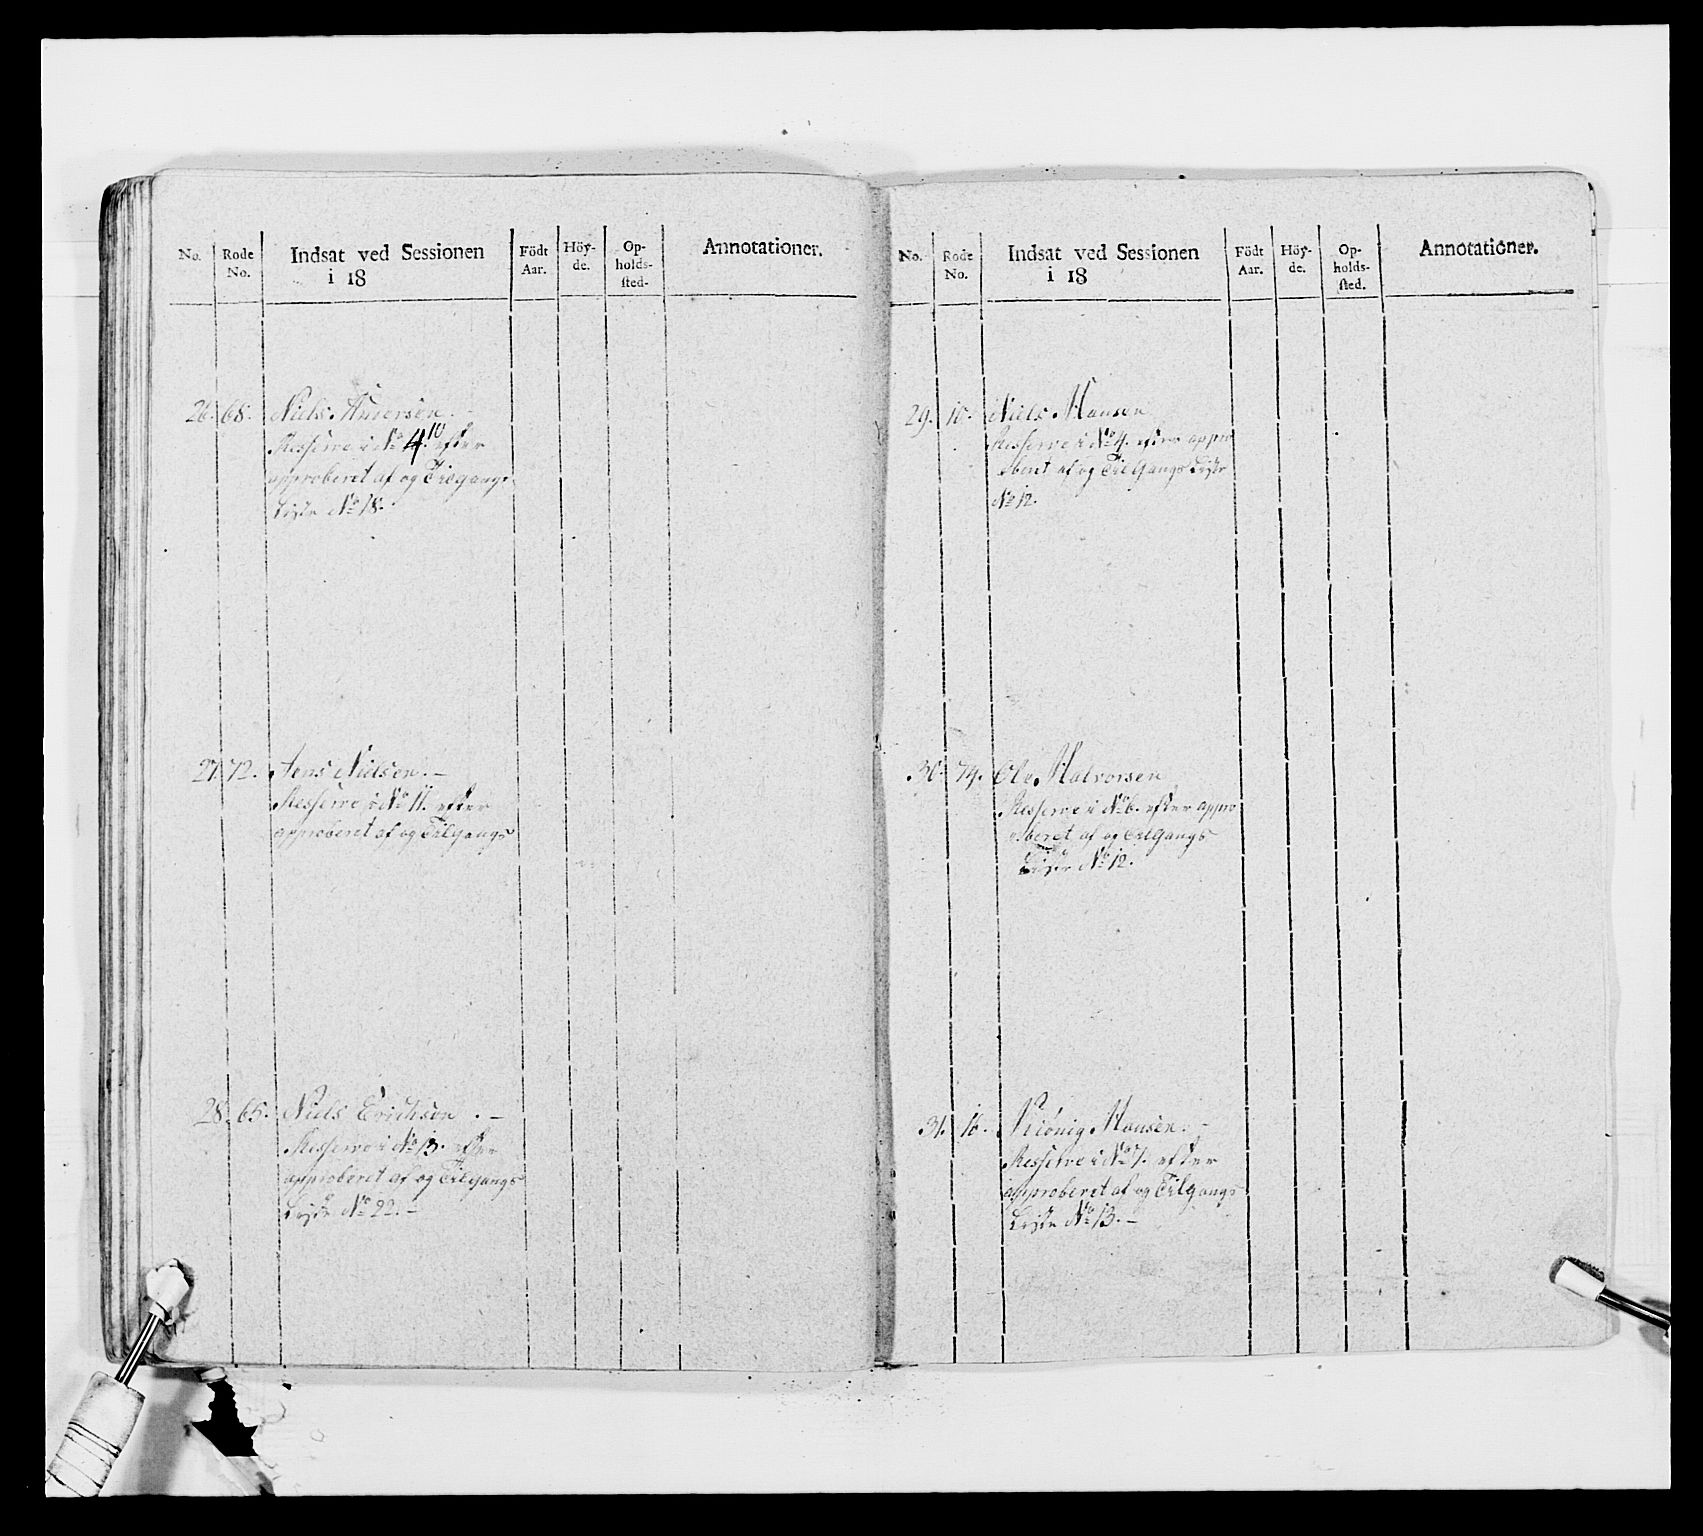 No. Rode No. Indsat ved Sessionen i 18 Födt Aar. Höy-de. Op-holds-sted. Annotationer.
26. 68. Niels Andersen. -
Resserve i No 4. 10 efter
approberet af og Tilgangs
Liste No 18.
27. 72. Jens Nielsen. -
Resserve i No 11. efter
approberet af og Tilgangs
28. 65. Niels Erichsen. -
Resserve i No 13. efter
approberet af og Tilgangs
Liste No 22. -
No. Rode No. Indsat ved Sessionen i 18 Födt Aar. Höy-de. Op-holds-sted. Annotationer.
29. 10. Niels Hansen
Resserve i No 4. efter appro
beret af og Tilgangs Liste
No 12.
30. 74. Ole Halvorsen
Resserve i No 6. efter appro
beret af og Tilgangs
Liste No 12.
31. 16. Hansen. -
Resserve i No 7. efter
approberet af og Tilgangs
Liste No 13. -